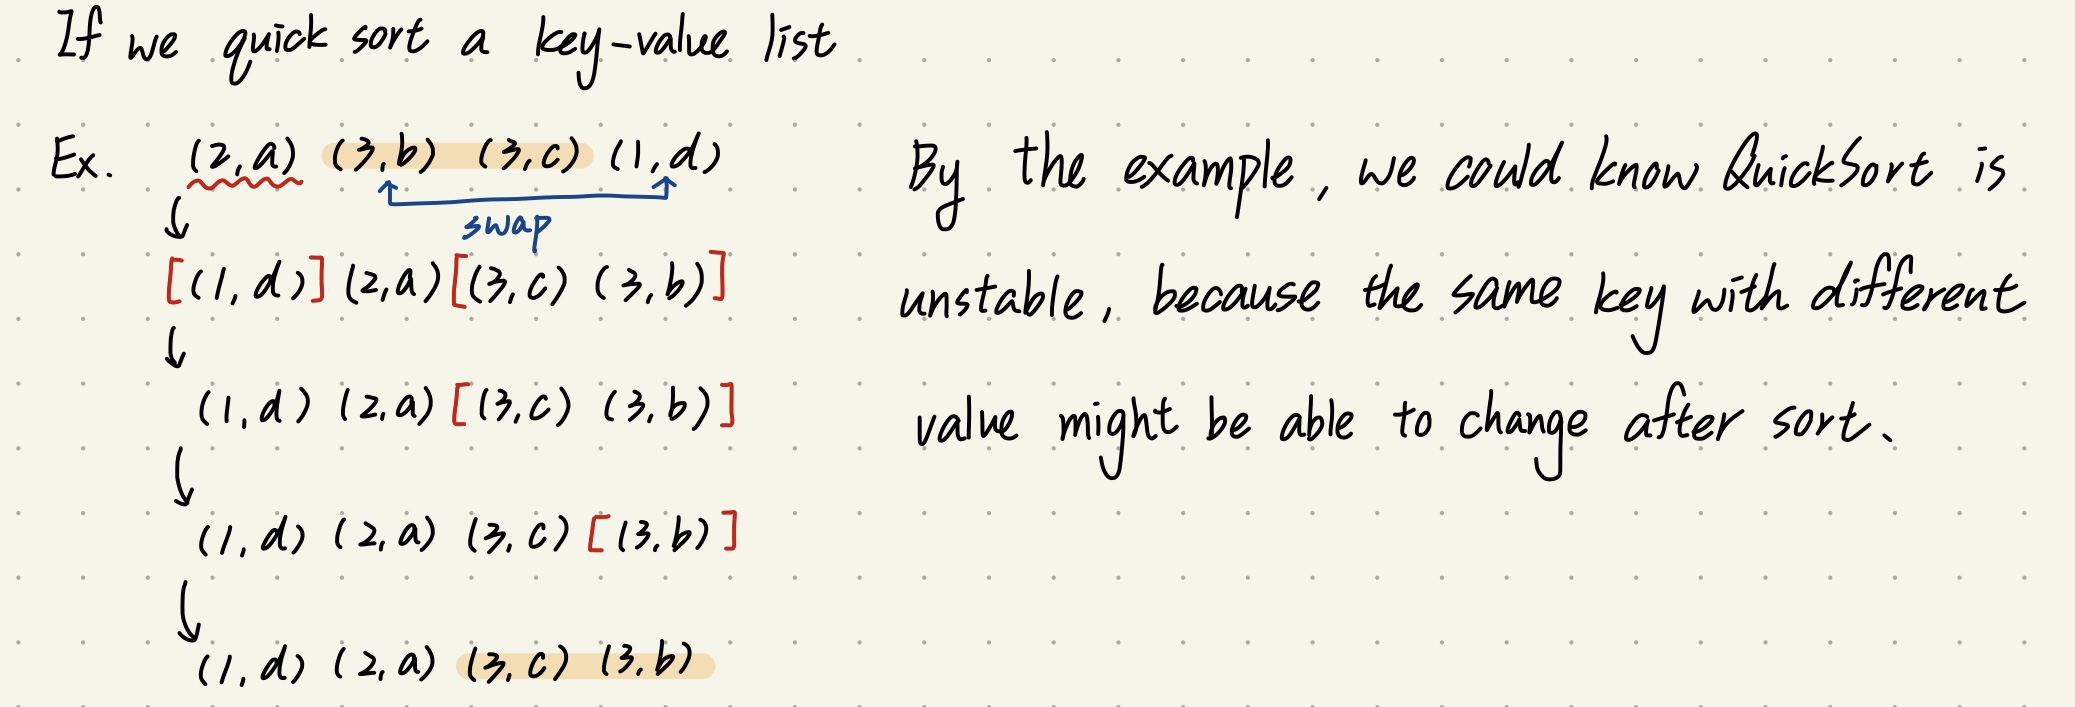 If we quick sort a key-value list
Ex. (2,a) (3,b) (3,c) (1,d)
swap
[(1,d)] (2,a) [(3,c) (3,b)]
(1,d) (2,a) [(3,c) (3,b)]
(1,d) (2,a) (3,c) [(3,b)]
(1,d) (2,a) (3,c) (3,b)
By the example, we could know QuickSort is
unstable, because the same key with different
value might be able to change after sort、